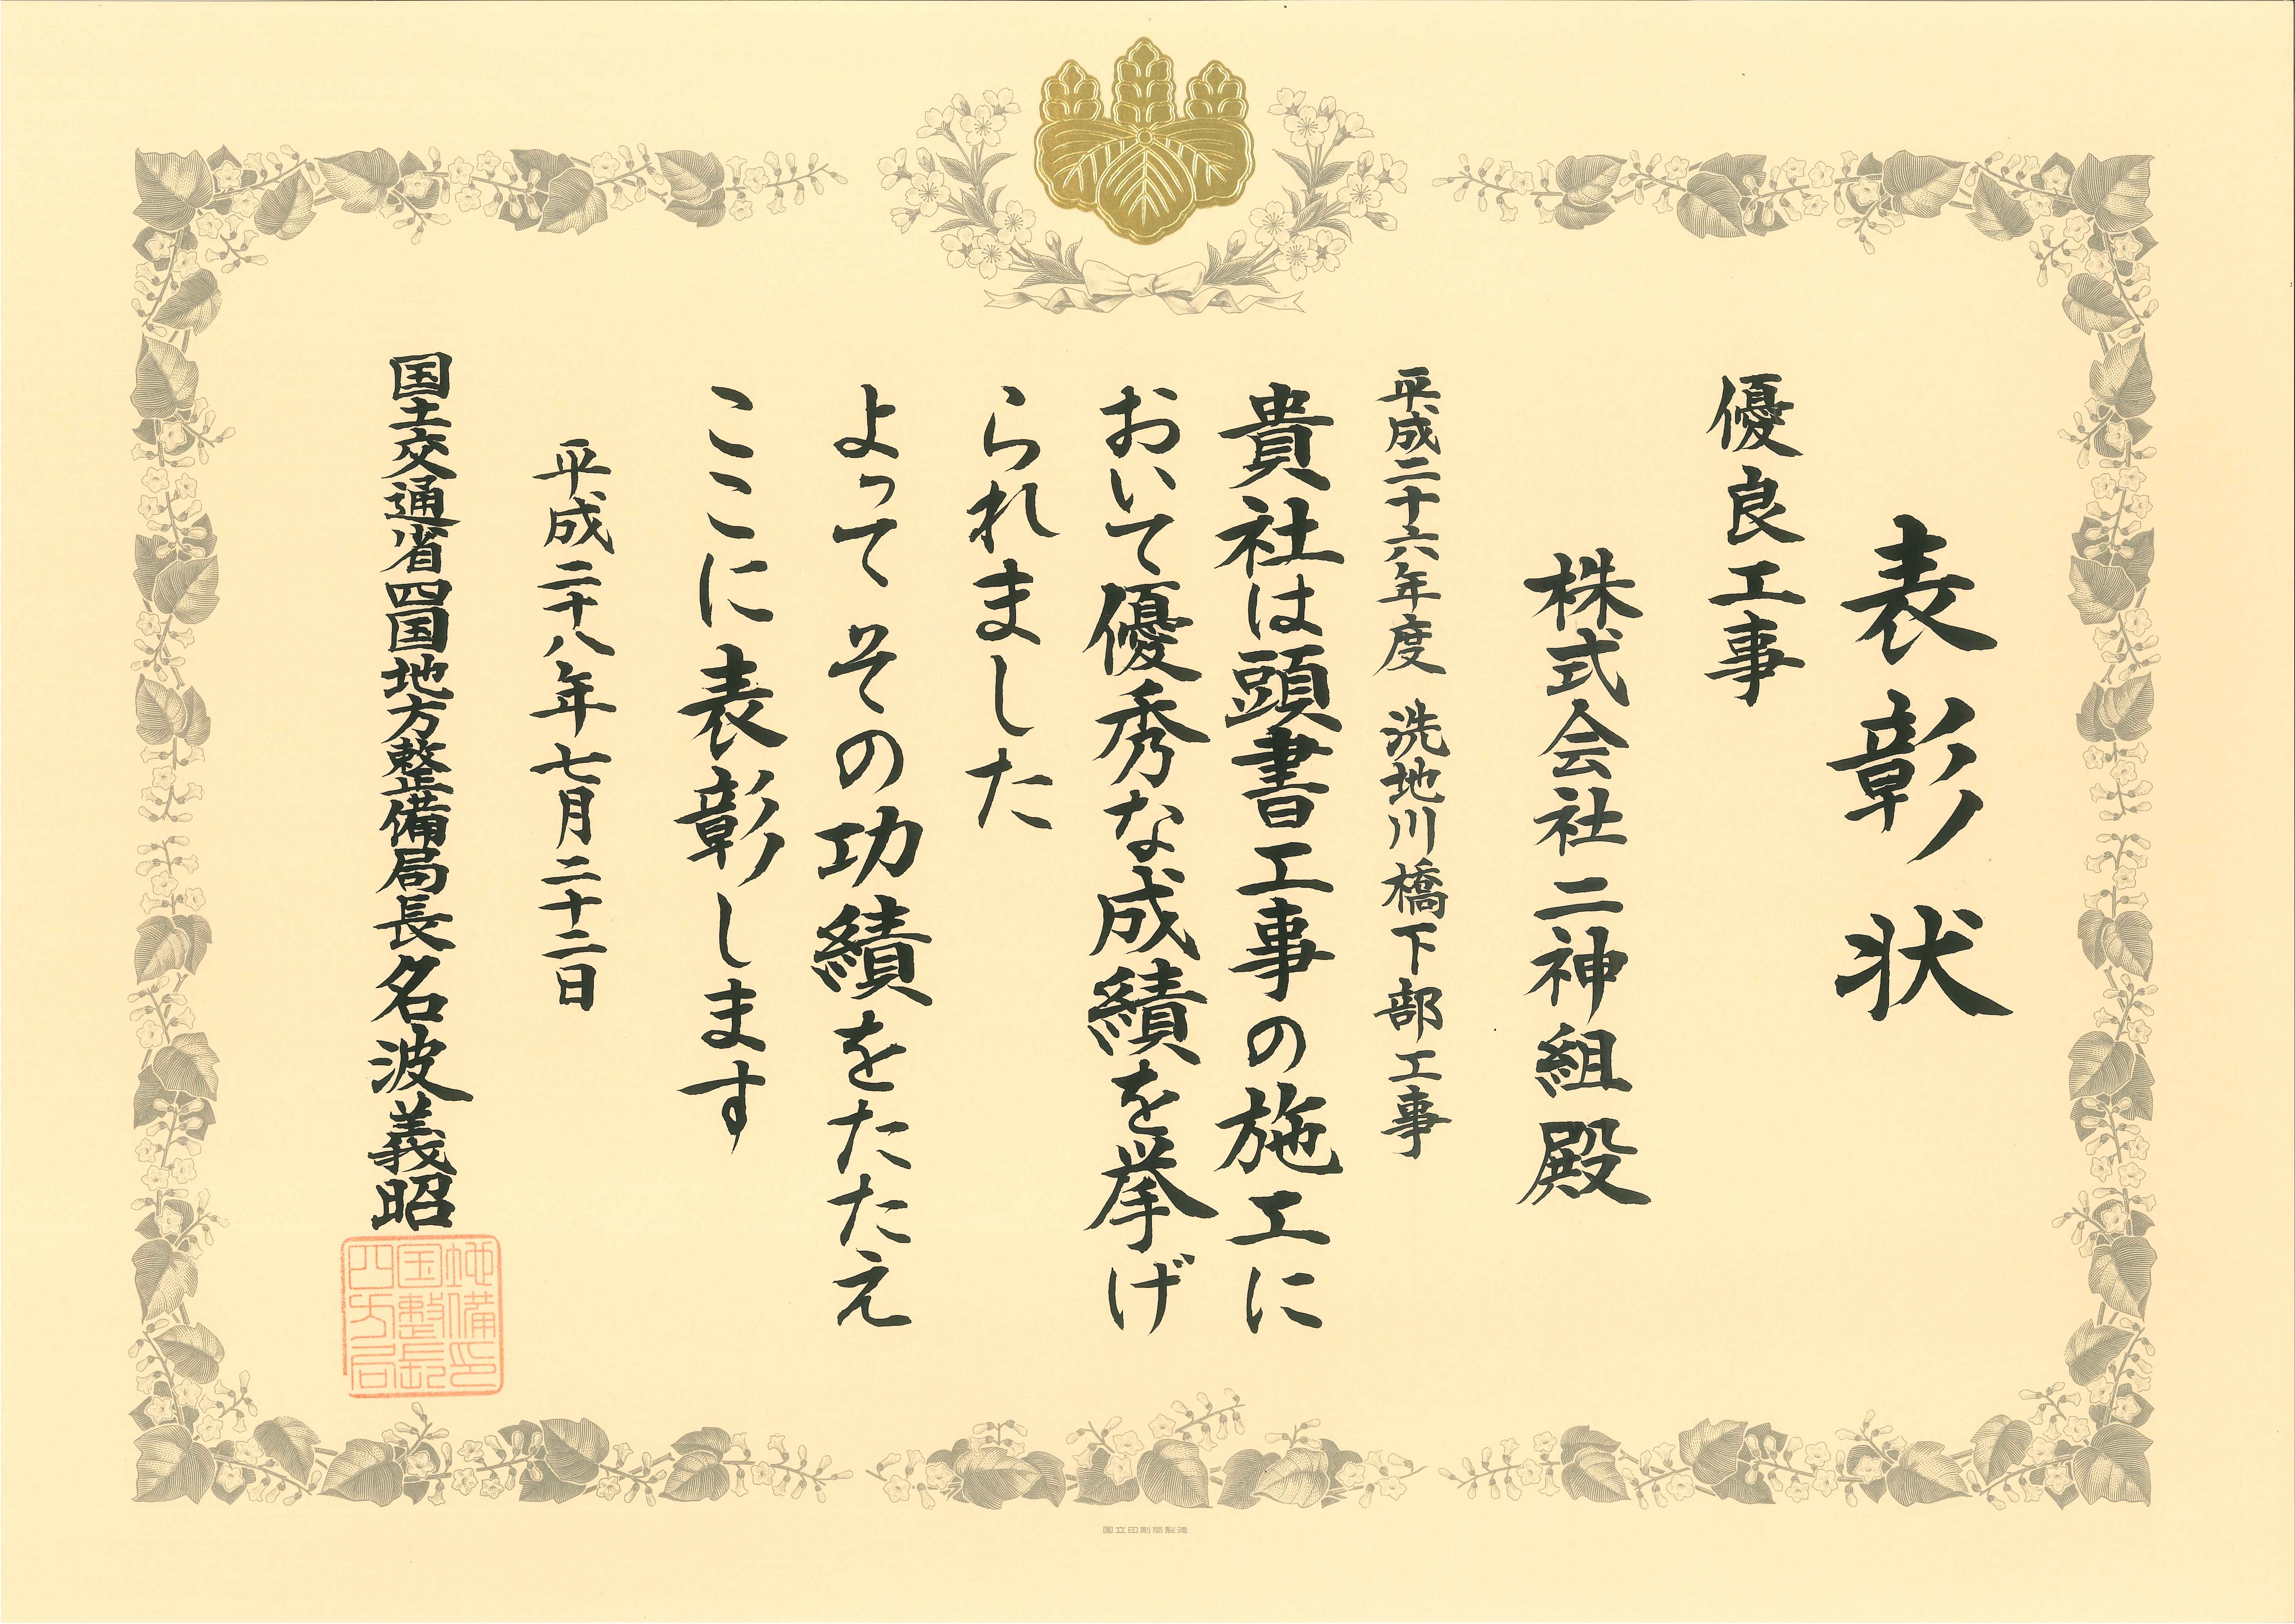 表彰状
優良工事
株式会社二神組殿
平成二十六年度 洗地川橋下部工事
貴社は頭書工事の施工に
おいて優秀な成績を挙げ
られました
よってその功績をたたえ
ここに表彰します
平成二十八年七月二十二日
国土交通省四国地方整備局長名波義昭
四国地
方整備
局長印
国立印刷局製造